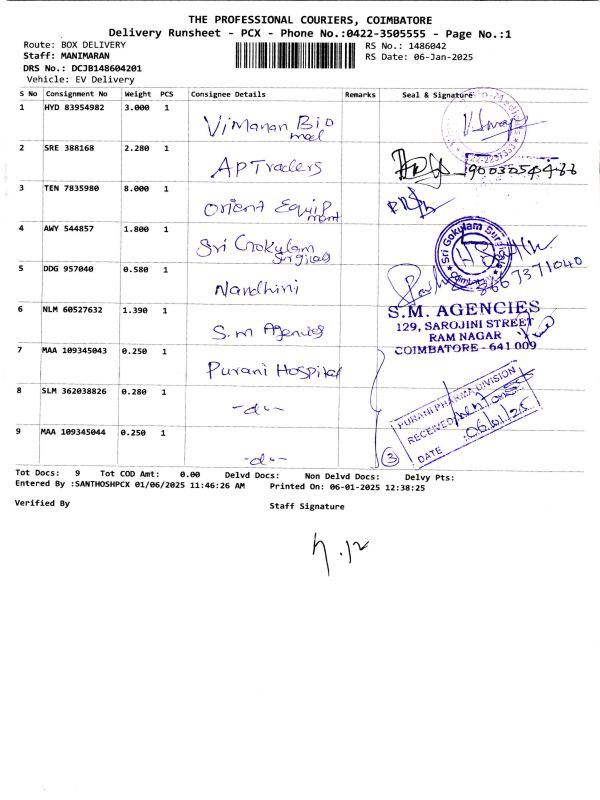 THE PROFESSIONAL COURIERS, COIMBATORE
Delivery Runsheet - PCX - Phone No.:0422-3505555 - Page No.:1
Route: BOX DELIVERY RS No.: 1486042
Staff: MANIMARAN RS Date: 06-Jan-2025
DRS No.: DCJB148604201
Vehicle: EV Delivery
S No Consignment No Weight PCS Consignee Details Remarks Seal & Signature
1 HYD 83954982 3.000 1 Vimanan Bio med
2 SRE 388168 2.280 1 AP Traders
3 TEN 7835980 8.000 1 Orient Equipment
4 AWY 544857 1.800 1 Sri Gokulam Surgicals
Sri Gokulam Surgicals
Coimbatore
5 DDG 957040 0.580 1 Nandhini 8667371040
6 NLM 60527632 1.390 1 S.m Agencies
S.M. AGENCIES
129, SAROJINI STREET
RAM NAGAR
COIMBATORE - 641 009
7 MAA 109345043 0.250 1 Purani Hospital
8 SLM 362038826 0.280 1 -do-
PURANI PHARMA DIVISION
RECEIVED
DATE 06/01/25
9 MAA 109345044 0.250 1 -do- 3
Tot Docs: 9 Tot COD Amt: 0.00 Delvd Docs: Non Delvd Docs: Delvy Pts:
Entered By :SANTHOSHPCX 01/06/2025 11:46:26 AM Printed On: 06-01-2025 12:38:25
Verified By Staff Signature